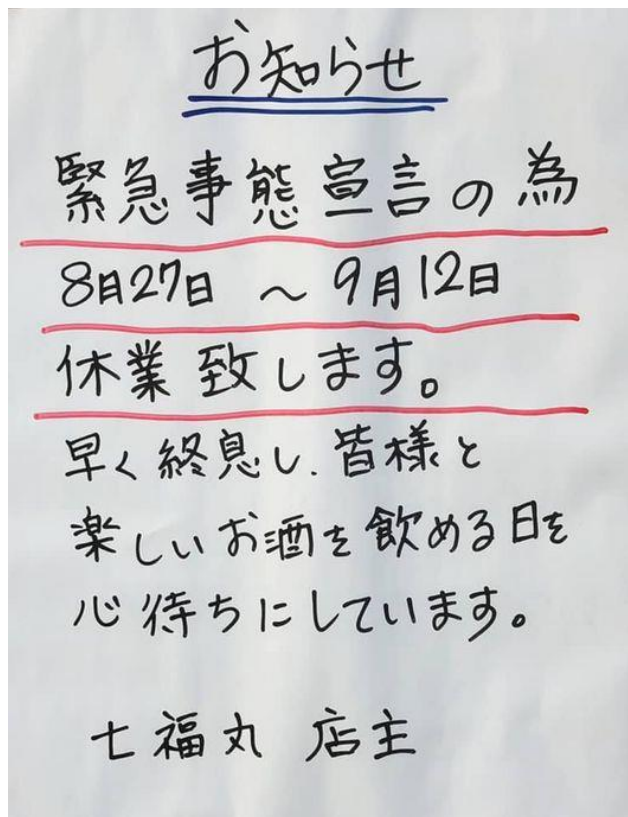 お知らせ
緊急事態宣言の為
8月27日 ～ 9月12日
休業致します。
早く終息し、皆様と
楽しいお酒を飲める日を
心待ちにしています。
七福丸 店主